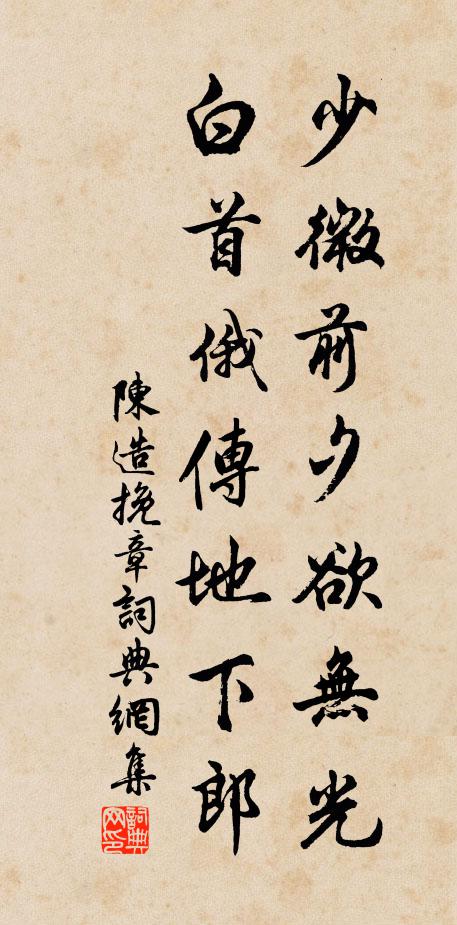 少微前夕欲無光
白首俄傳地下郎
陳造挽章詞典網集
詞典网印